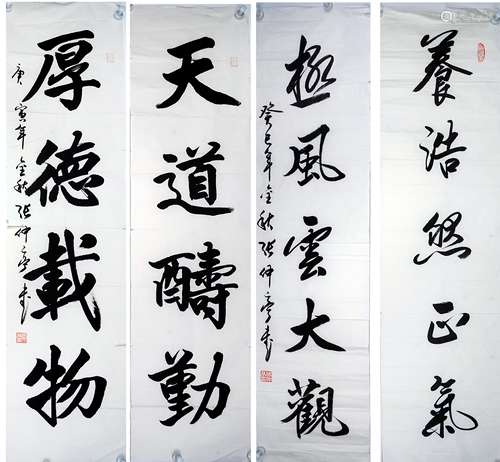 養浩然正氣
極風雲大觀
癸巳年金秋張仲亭書
天道酬勤
厚德載物
庚寅年金秋張仲亭書